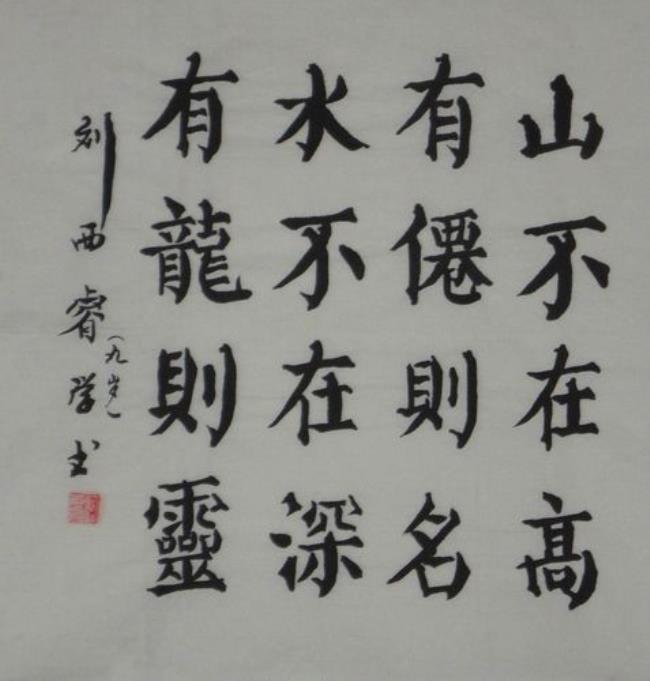 山不在高
有僊則名
水不在深
有龍則靈
刘西睿学书
(九岁)